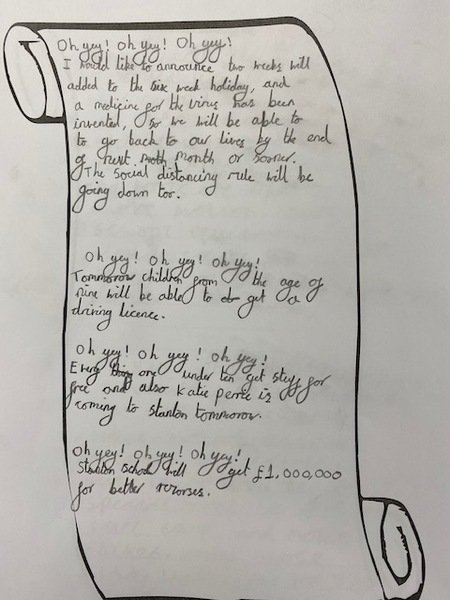 Oh yey! Oh yey! Oh yey!
I would like to announce two weeks will
added to the six week holiday, and
a medicine for the virus has been
invented, so we will be able to
to go back to our lives by the end
of next month or sooner.
The social distancing rule will be
going down too.
Oh yey! Oh yey! Oh yey!
Tommorow children from the age of
nine will be able to get a
driving licence.
Oh yey! Oh yey! Oh yey!
Every one under ten get stuff for
free and also Katie Perrie is
coming to stanton tommorow.
Oh yey! Oh yey! Oh yey!
Stanton school will get £1,000,000
for better recorses.